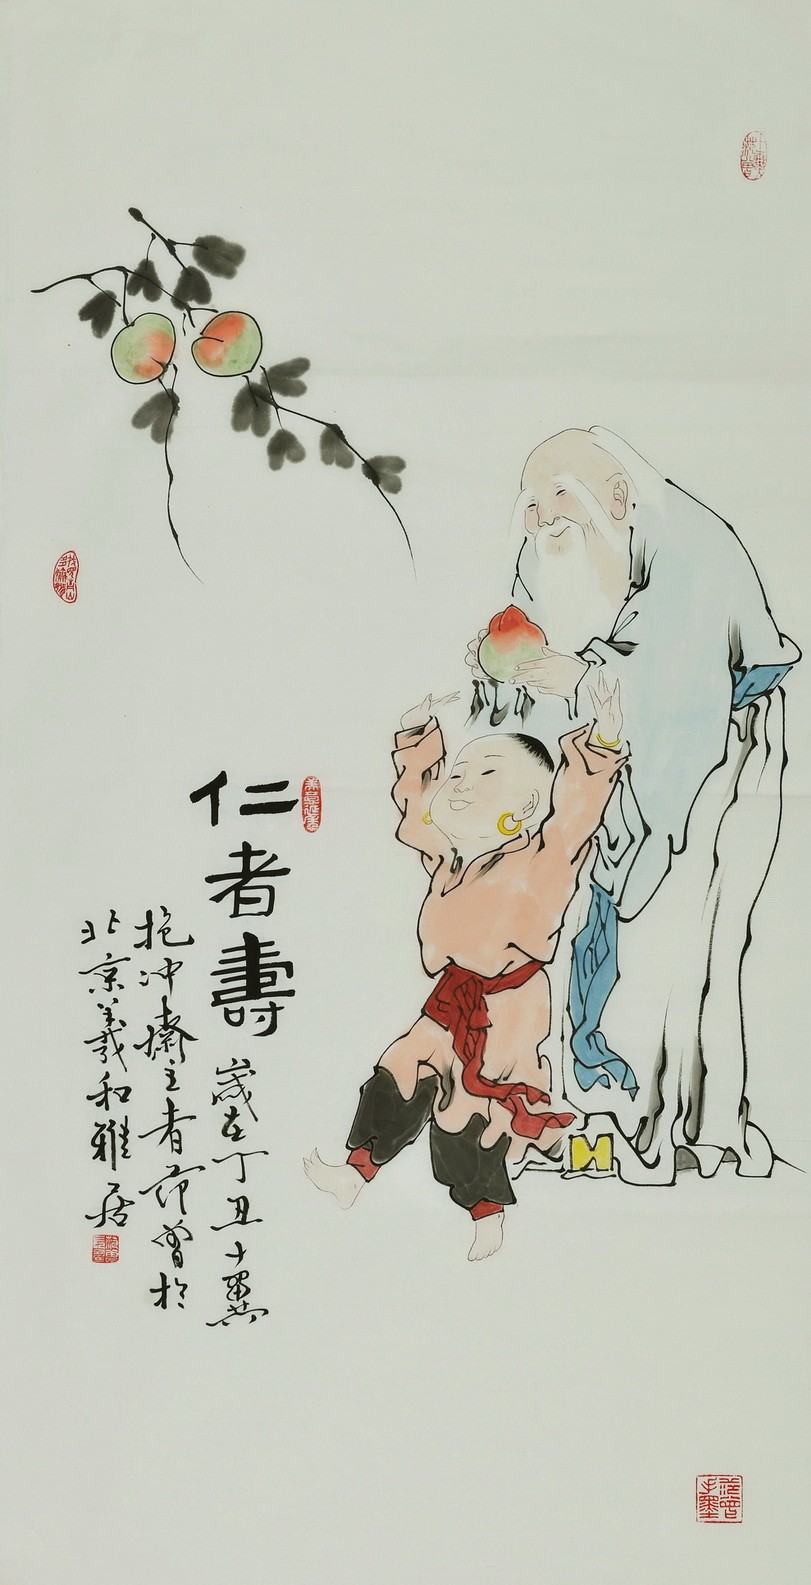 仁者壽
歲在丁丑十翼
抱冲齋主者范曾於
北京羲和雅居